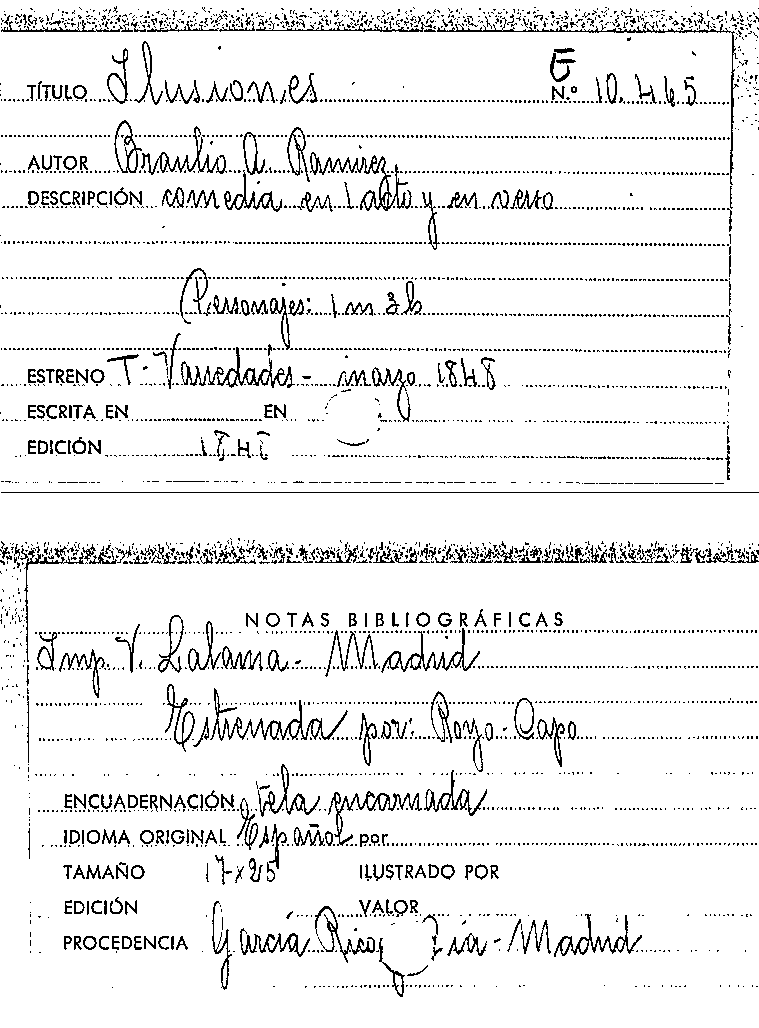 E
TÍTULO Ilusiones N.º 10.465
AUTOR Braulio A. Ramirez
DESCRIPCIÓN comedia en 1 acto y en verso
Personajes: 1 m 3 h
ESTRENO T. Variedades - marzo 1848
ESCRITA EN EN
EDICIÓN 1848
NOTAS BIBLIOGRÁFICAS
Imp. V. Lalama - Madrid
Estrenada por: Royo - Capo
ENCUADERNACIÓN tela encarnada
IDIOMA ORIGINAL Español por
TAMAÑO 17 x 25 ILUSTRADO POR
EDICIÓN VALOR
PROCEDENCIA García Rico - Madrid